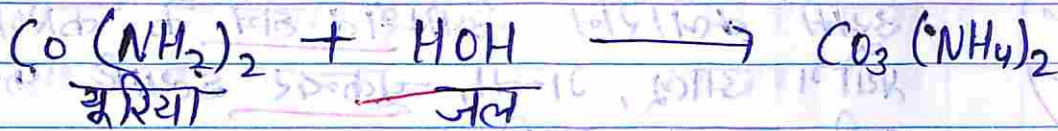 CO (NH₂)₂ + HOH ⟶ CO₃ (NH₄)₂
यूरिया जल